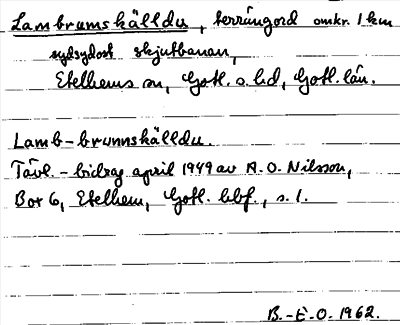 Lambrumskälldu, terrängord omkr. 1 km
sydsydost skjutbanan,
Etelhems sn, Gotl. s. hd, Gotl. län.
Lamb-brunnskälldu.
Tävl.-bidrag april 1949 av A.O. Nilsson,
Box 6, Etelhem, Gotl. bbf., s. 1.
B.-E.O. 1962.